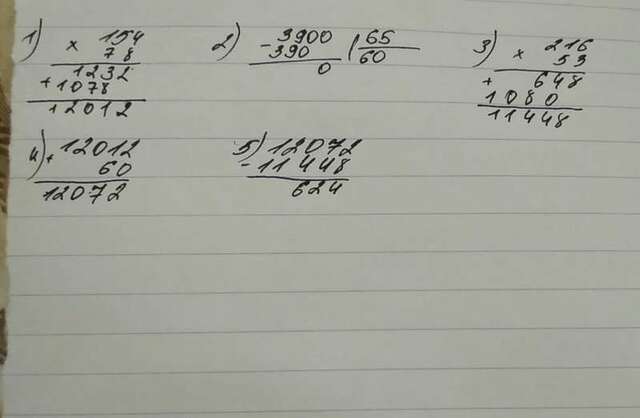 1) × 154
78
1232
+ 1078
12012
2) - 3900 | 65
390 60
0
3) × 216
53
+ 648
1080
11448
4) + 12012
60
12072
5) - 12072
11448
624